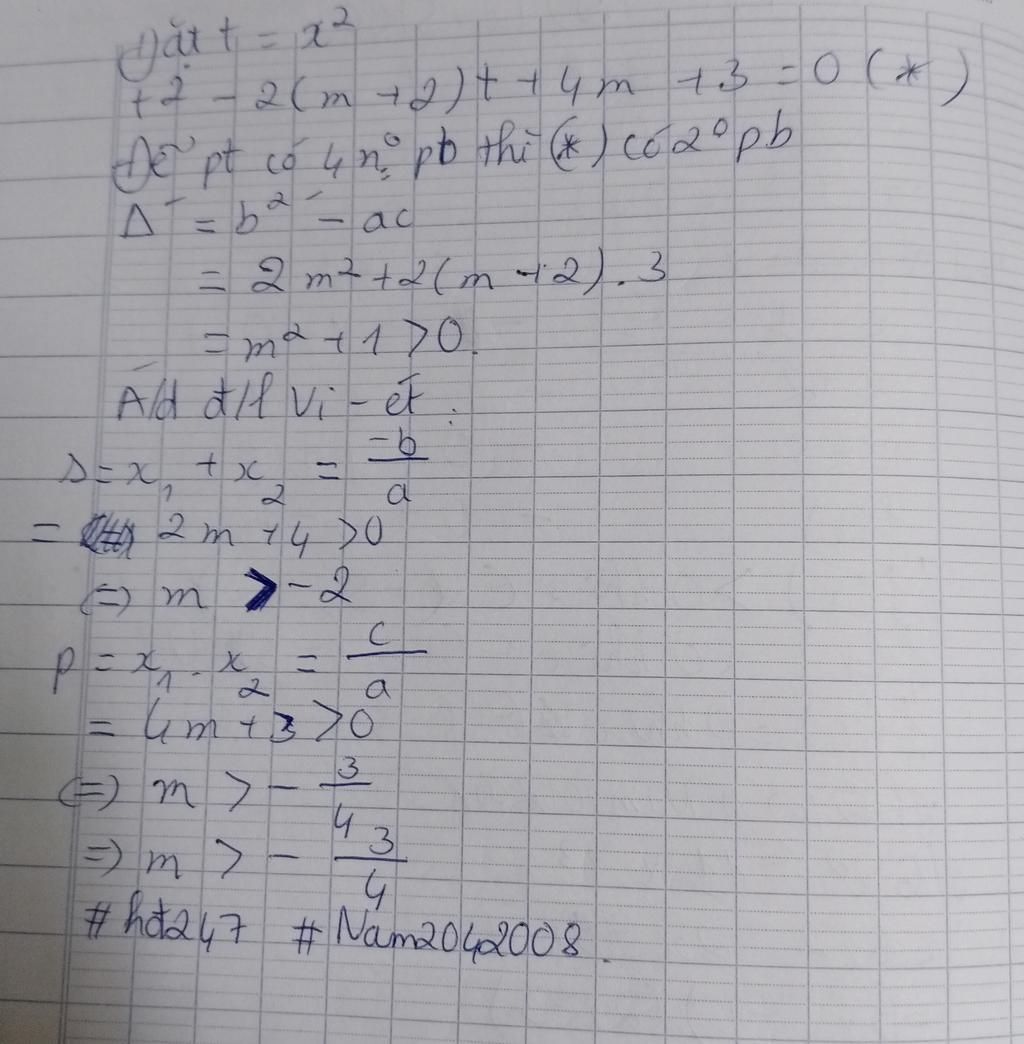 Đặt t = x²
t² - 2(m + 2)t + 4m + 3 = 0 (*)
Để pt có 4 n₀ pb thì (*) có 2⁰ pb
Δ' = b'² - ac
= 2m² + 2(m + 2).3
= m² + 1 > 0.
A/d đ/l Vi - ét.
S = x₁ + x₂ = -b/a
= 2m + 4 > 0
(=) m > -2
P = x₁ . x₂ = c/a
= 4m + 3 > 0
(=) m > - 3/4
=) m > - 3/4
#hđ247 #Nam2042008.